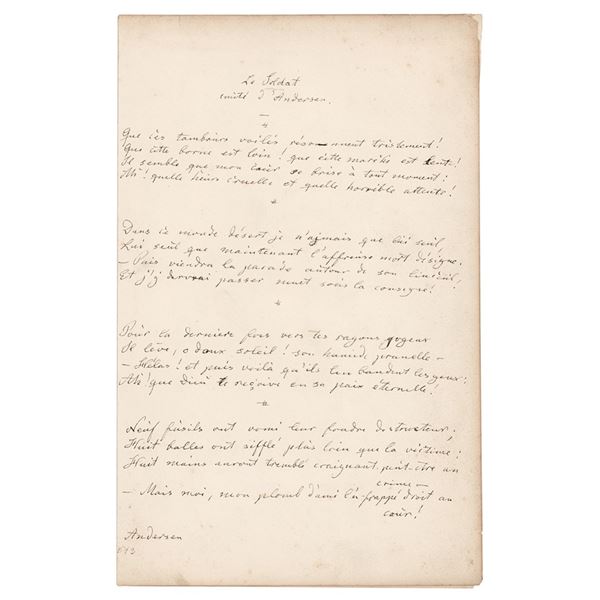 Le Soldat
imité d'Andersen.
Que ces tambours voilés résonnent tristement!
Que cette borne est loin! que cette marche est lente!
Il semble que mon cœur se brise à tout moment:
Ah! quelle heure cruelle et quelle horrible attente!
*
Dans ce monde désert je n'aimais que lui seul,
Lui seul que maintenant l'affreuse mort désigne.
— Puis viendra la parade autour de son linceul,
Et j'y devrai passer muet sous la consigne!
*
Pour la dernière fois vers tes rayons joyeux
Il lève, o doux soleil! son humide prunelle —
— Hélas! et puis voilà qu'ils lui bandent les yeux:
Ah! que Dieu te reçoive en sa paix éternelle!
*
Neuf fusils ont vomi leur foudre destructeur;
Huit balles ont sifflé plus loin que la victime:
Huit mains auront tremblé craignant peut-être un
crime —
— Mais moi, mon plomb d'ami l'a frappé droit au
cœur!
Andersen